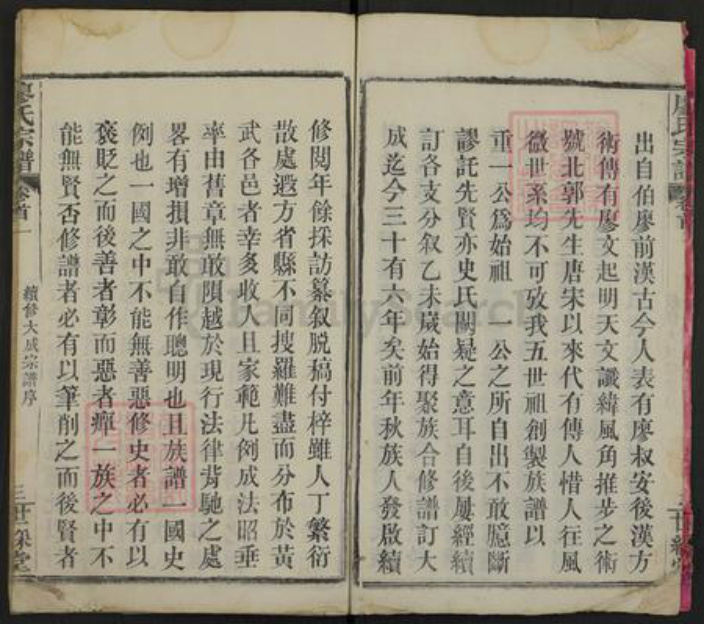 出自伯廖前漢古今人表有廖叔安後漢方
術傳有廖文起明天文讖緯風角推步之術
號北郭先生唐宋以來代有傳人惜人往風
微世系均不可攷我五世祖創製族譜以
重一公爲始祖　一公之所自出不敢臆斷
謬託先賢亦史氏闕疑之意耳自後屢經續
訂各支分叙乙未嵗始得聚族合修譜訂大
成迄今三十有六年矣前年秋族人發啟續
修閲年餘採訪纂叙脱稿付梓雖人丁繁衍
散處遐方省縣不同搜羅難盡而分布於黃
武各邑者幸多收入且家範凡例成法昭垂
率由舊章無敢隕越於現行法律背馳之處
畧有增損非敢自作聰明也且族譜一國史
例也一國之中不能無善惡修史者必有以
褒貶之而後善者彰而惡者癉一族之中不
能無賢否修譜者必有以筆削之而後賢者
廖氏宗譜
卷首一
續修大成宗譜序
三 世綵堂